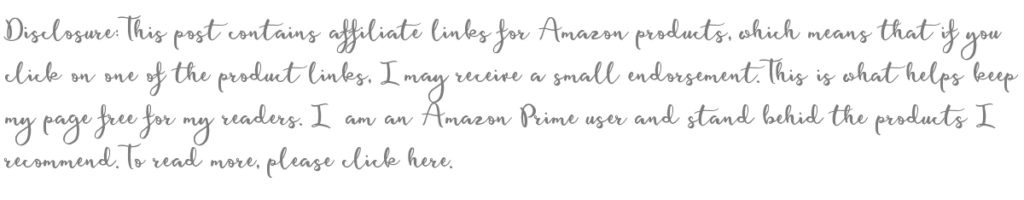 Disclosure: This post contains affiliate links for Amazon products, which means that if you
click on one of the product links, I may receive a small endorsement. This is what helps keep
my page free for my readers. I am an Amazon Prime user and stand behid the products I
recommend. To read more, please click here.